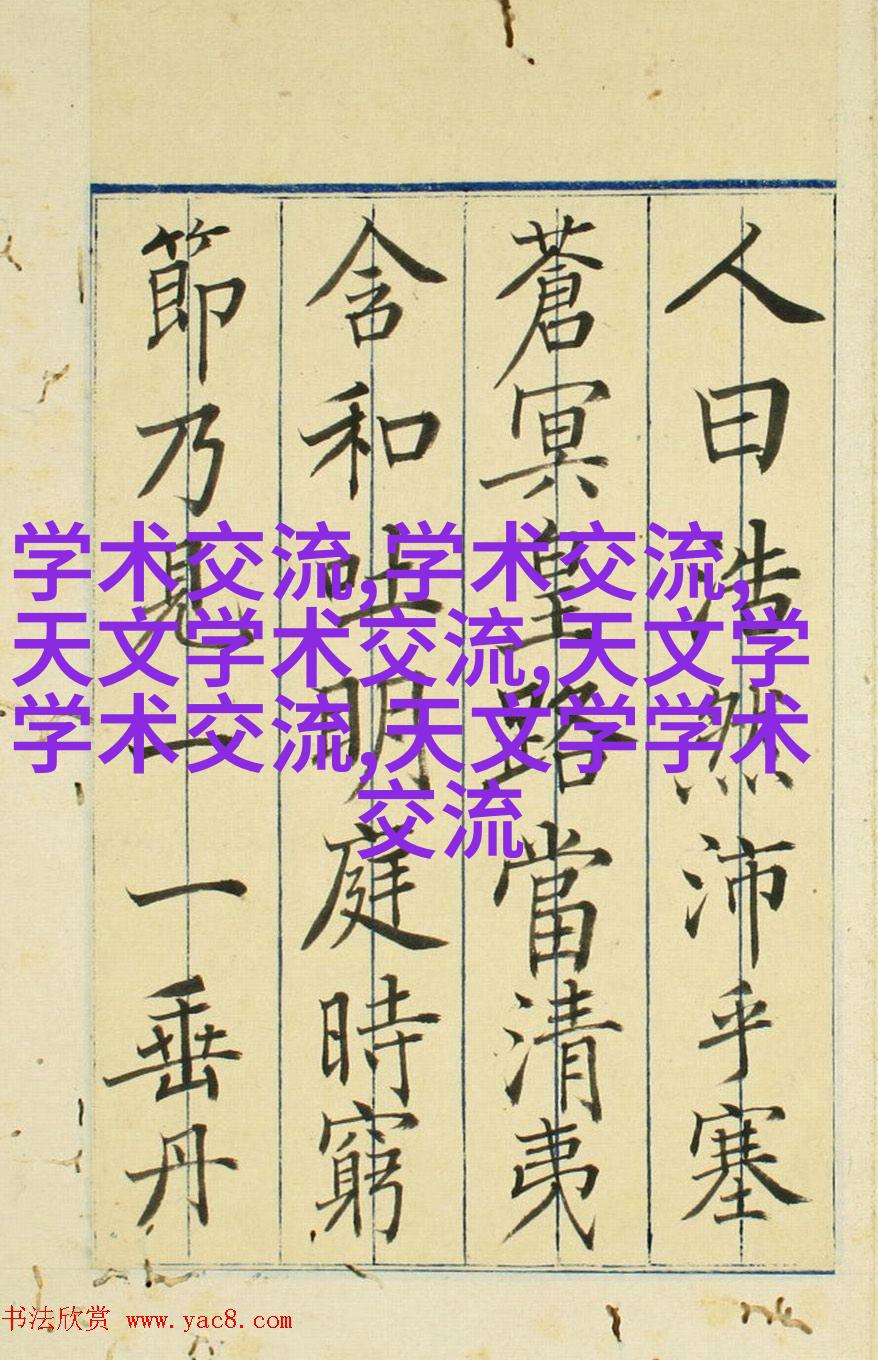 人曰浩然沛乎塞
蒼冥皇路當清夷
含和吐明庭時窮
節乃見一一垂丹
学术交流,学术交流,
天文学术交流,天文学
学术交流,天文学学术
交流
书法欣赏 www.yac8.com